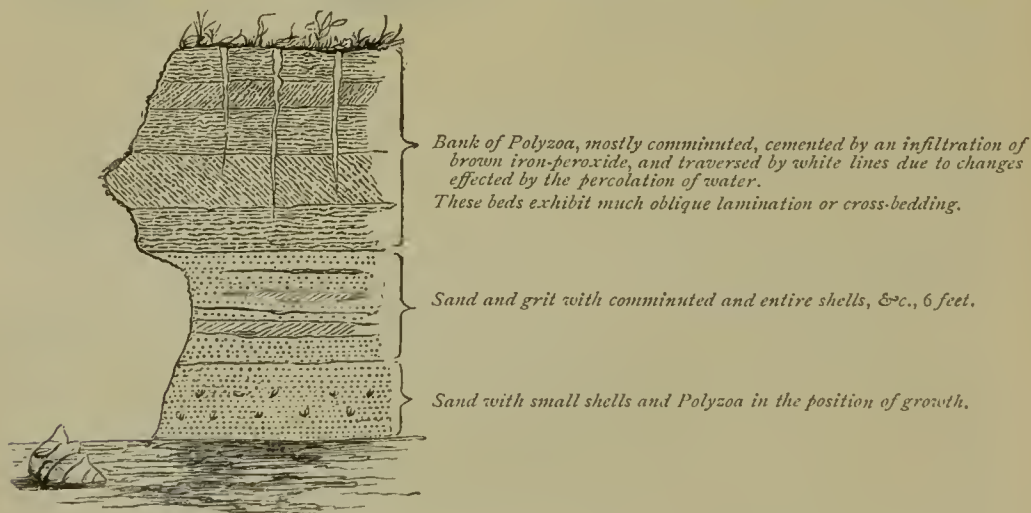 Bank of Polyzoa, mostly comminuted, cemented by an infiltration of
brown iron-peroxide, and traversed by white lines due to changes
effected by the percolation of water.
These beds exhibit much oblique lamination or cross-bedding.
Sand and grit with comminuted and entire shells, &c., 6 feet.
Sand with small shells and Polyzoa in the position of growth.